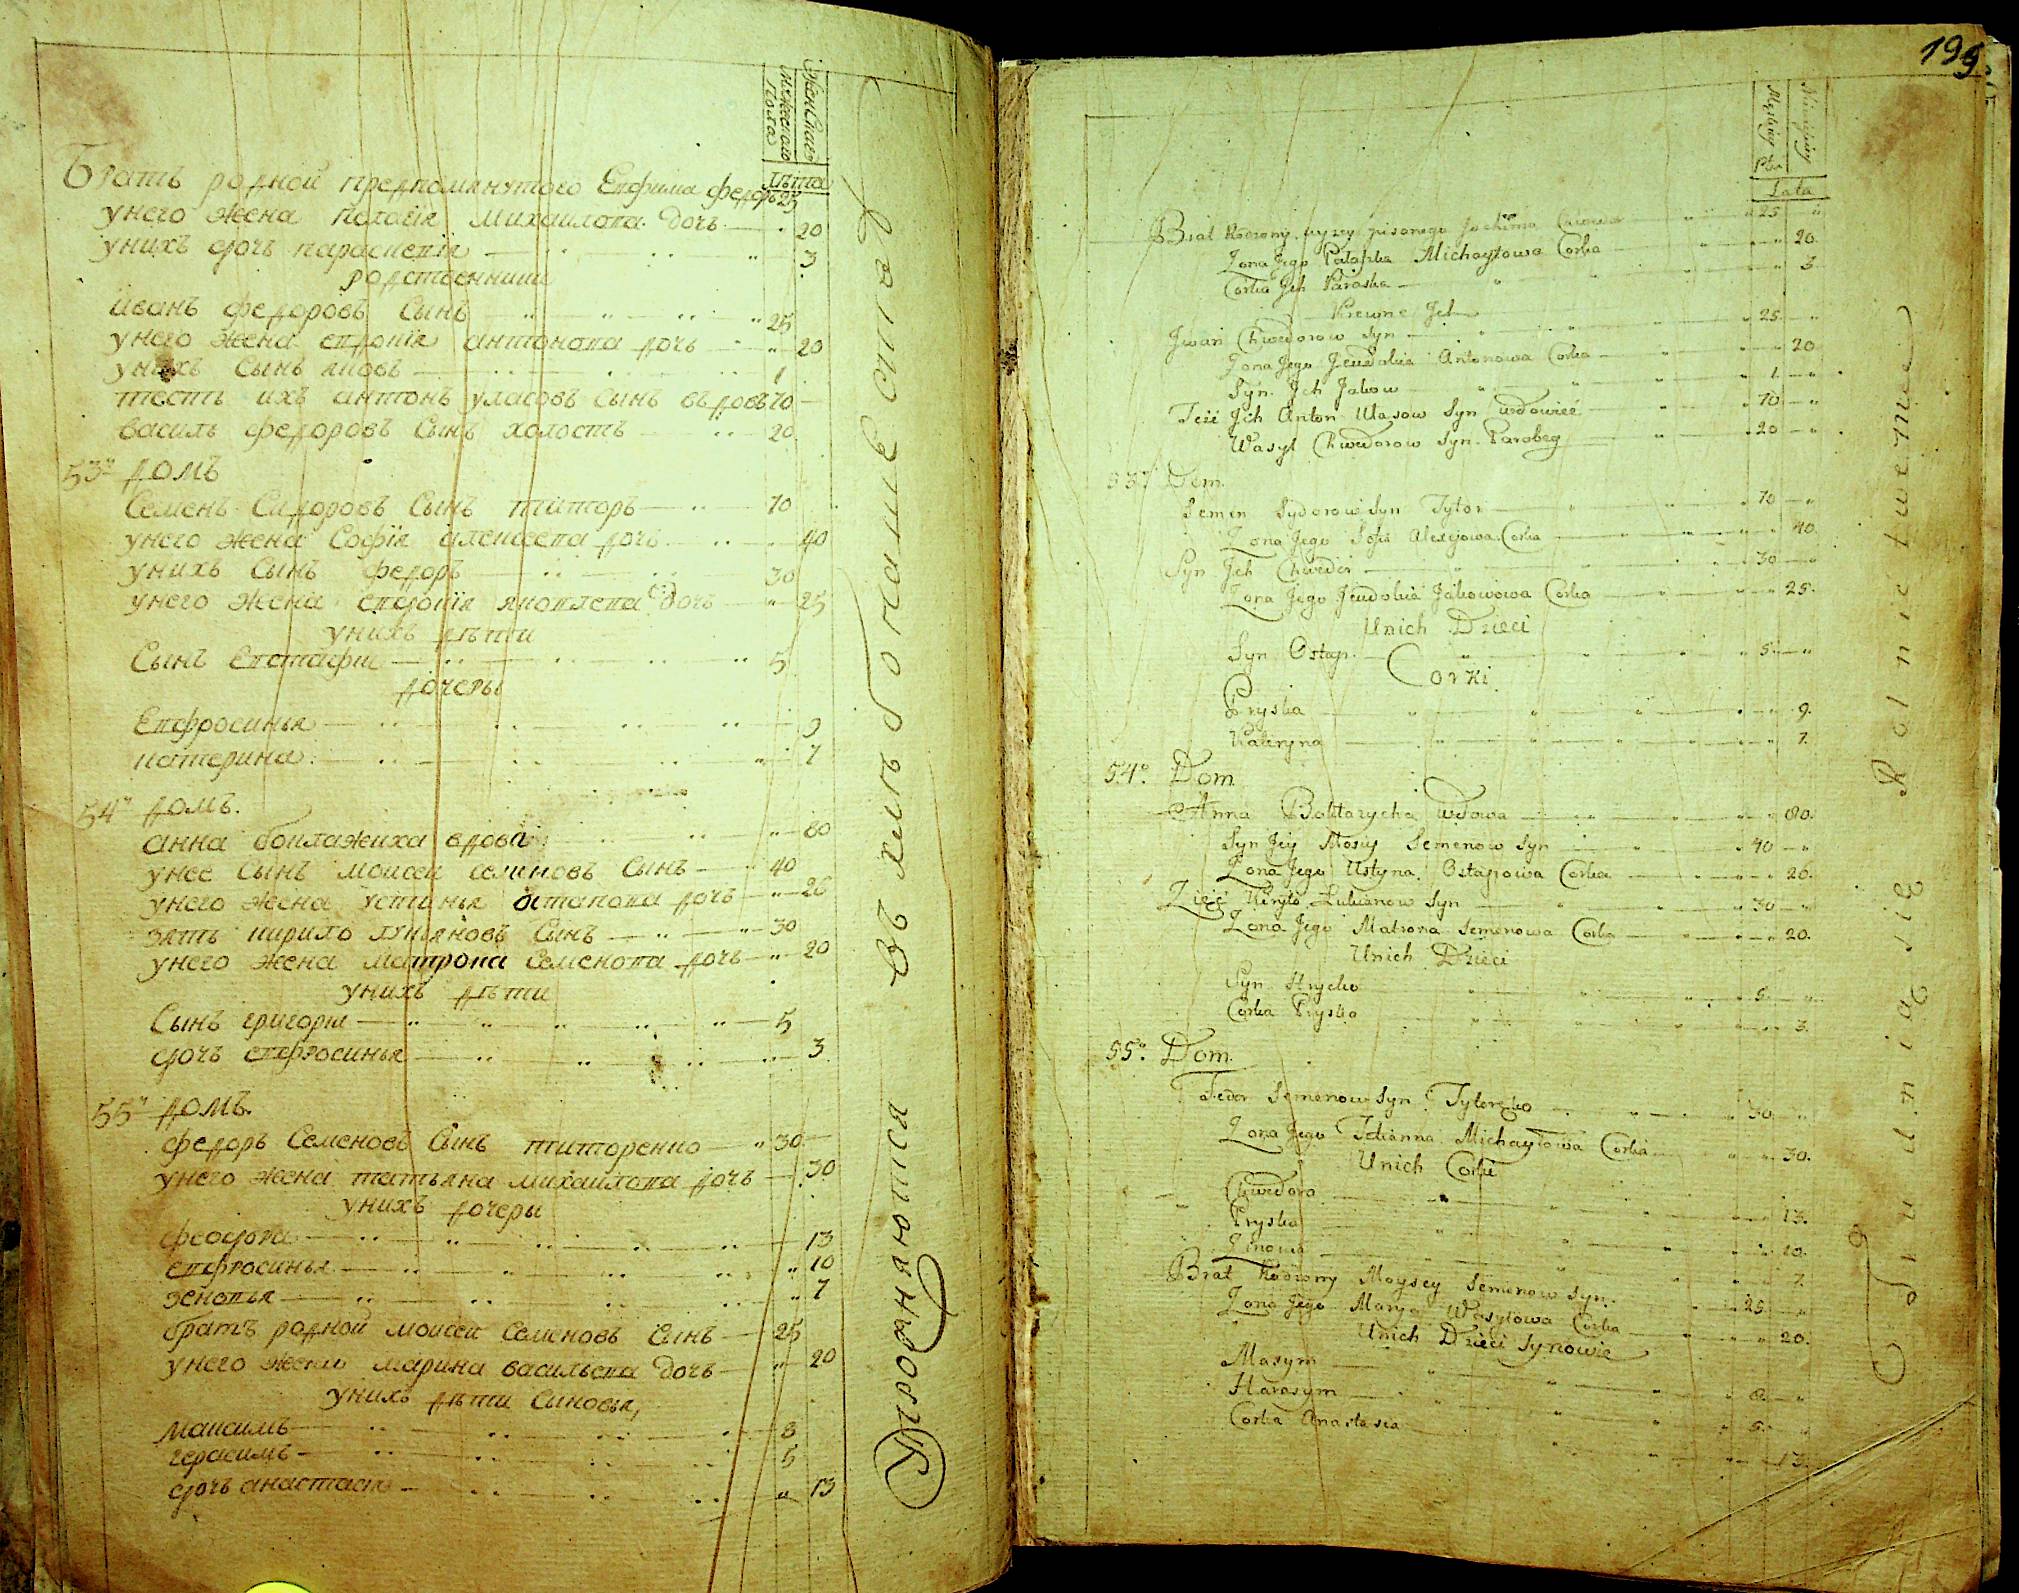 Женска
Мужеского
Пола
Лѣта
Братъ родной предпомянутого Евфима Федоръ 25
унего жена Палагія Михаилова дочь 20
унихъ дочь параскевія 3
родственники
иванъ федоровъ Сынъ 25
унего жена евдокія антонова дочь 20
унихъ Сынъ яковъ 1
тесть ихъ антонъ уласовъ Сынъ вдовъ 70
василь федоровъ Сынъ холостъ 20
53й домъ
Семенъ Сидоровъ Сынъ титоръ 70
унего жена Софія алексеева дочь 40
унихъ Сынъ федоръ 30
унего жена евдокія яковлева дочь 25
унихъ дѣти
Сынъ Евстафи 5
дочеры
Евфросинья 9
катерина 7
54й домъ.
анна вдова 80
унее Сынъ моисеи семеновъ Сынъ 40
унего жена устинья остапова дочь 26
зять кирило лукьяновъ Сынъ 30
унего жена матрона Семенова дочь 20
унихъ дѣти
Сынъ григори 5
дочь евфросинья 3
55й домъ.
федоръ Семеновъ Сынъ титоренко 30
унего жена татьяна михаилова дочь 30
унихъ дочеры
феодора 13
евфросинья 10
зеновья 7
братъ родной моисеи Семеновъ Сынъ 25
унего жена марина васильева дочь 20
унихъ дѣти Сыновья,
максимъ 8
герасимъ 5
дочь анастаси 13
въ хлѣбопашестве
199
Męskiey
Płci
Lata
Brat Rodzony wyzey pisanego Jochima Chwedor 25
Zona Jego Palazka Michayłowa Corka 20
Corka Jch Paraska 3
Krewne Jch
Jwan Chwedorow Syn 25
Zona Jego Jewdokia Antonowa Corka 20
Syn Jch Jakow 1
Teść Jch Anton Ułasow Syn wdowiec 70
Wasyl Chwedorow Syn Parobeg 20
53. Dom.
Semen Sydorow Syn Tytor 70
Zona Jego Sofia Alexijowa Corka 40
Syn Jch Chwedor 30
Zona Jego Jewdokia Jakowowa Corka 25.
Unich Dzieci
Syn Ostap 5
Corki
Pryska 9.
Kateryna 7.
54. Dom
Anna Wdowa 80.
Syn Jey Mosiy Semenow Syn 40
Zona Jego Ustyna Ostapowa Corka 26.
Zięć Kiryło Lukianow Syn 30
Zona Jego Matrona Semenowa Corka 20.
Unich Dzieci
Syn Hrycko 5
Corka Pryska 3.
55. Dom.
Fedor Semenow Syn Tytorenko 30
Zona Jego Tatianna Michayłowa Corka 30.
Unich Corki
Chwedora 13.
Pryska 10.
Zinowia 7.
Brat Rodzony Moysey Semenow Syn 25
Zona Jego Marya Wasylowa Corka 20.
Unich Dzieci Synowie
Maxym 8
Harasym 5
Corka Anastasia 13.